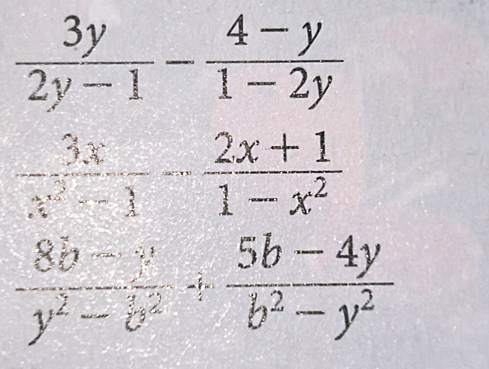 \frac{3y}{2y-1} - \frac{4-y}{1-2y}
\frac{3x}{x^2-1} - \frac{2x+1}{1-x^2}
\frac{8b-y}{y^2-b^2} + \frac{5b-4y}{b^2-y^2}